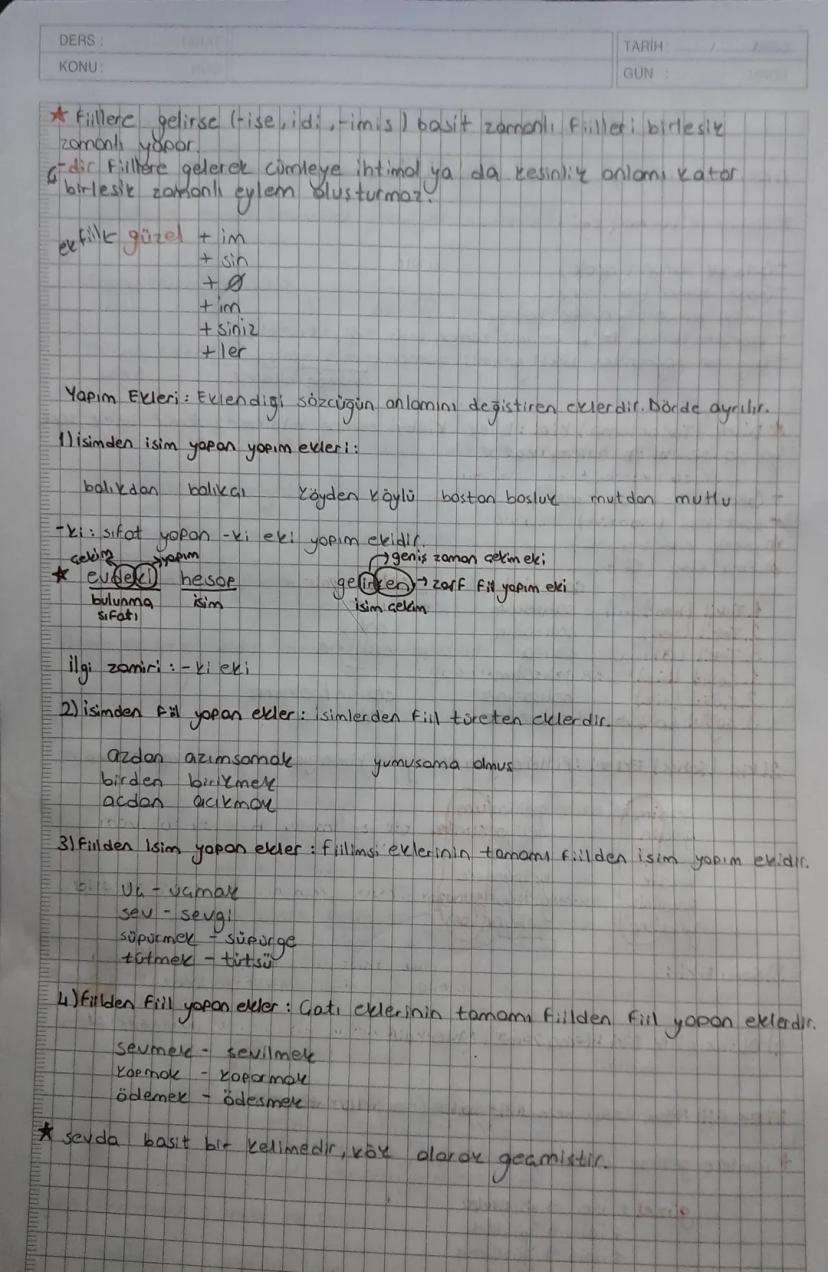 DERS :
KONU :
TARİH / /
GÜN :
★ fiillere gelirse (-ise, idi, -imis) basit zamanlı fiilleri birlesik
zamanlı yapar.
-dir fiillere gelerek cümleye ihtimal ya da kesinlik anlamı katar
birlesik zamanlı eylem olusturmaz.
ekfiil güzel + im
+ sin
+ Ø
+ im
+ siniz
+ ler
Yapım Ekleri : Eklendigi sözcügün anlamını degistiren eklerdir. Dörde ayrılır.
1) isimden isim yapan yapım ekleri :
balıkdan balıkcı köyden köylü bostan bosluk mutdan mutlu
-ki : sıfat yapan -ki eki yapım ekidir.
cekim yapım → genis zaman cekim eki
★ evdeki hesap gelirken → zarf fiil yapım eki
bulunma isim isim cekim
sıfatı
ilgi zamiri : -ki eki
2) isimden fiil yapan ekler : isimlerden fiil türeten eklerdir.
azdan azımsamak yumusama olmus
birden birikmek
acdan acıkmak
3) Fiilden isim yapan ekler : fiilimsi eklerinin tamamı fiilden isim yapım ekidir.
uc - ucmak
sev - sevgi
süpürmek - süpürge
tütmek - tütsü
4) Fiilden fiil yapan ekler : Catı eklerinin tamamı fiilden fiil yapan eklerdir.
sevmek - sevilmek
kopmak - koparmak
ödemek - ödesmek
★ sevda basit bir kelimedir, kök olarak gecmistir.